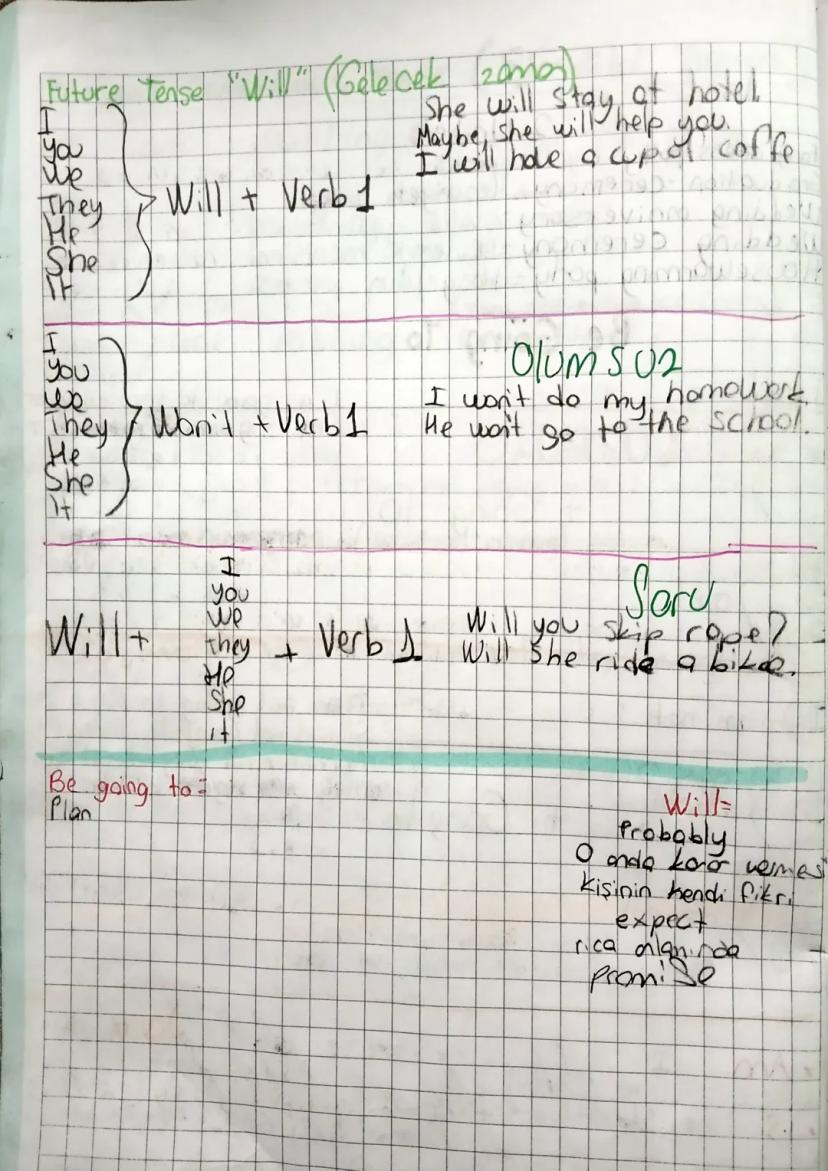 Future Tense "Will" (Gelecek zaman)
I
you
we
They
He
She
It
Will + Verb 1
She will stay at hotel
Maybe, she will help you.
I will have a cup of coffe
I
you
we
They
He
She
It
Won't + Verb 1
Olumsuz
I won't do my homework.
He won't go to the school.
Will +
I
you
we
they
He
She
it
+ Verb 1
Soru
Will you skip rope?
Will she ride a bike.
Be going to =
Plan
Will =
Probably
O anda karar vermesi
kişinin kendi fikri
expect
rica anlamında
promise